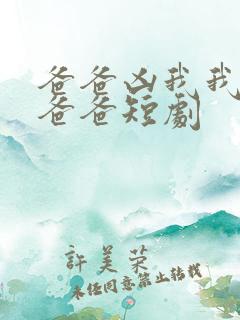 爸爸凶我我
爸爸短劇
許美榮
未經同意禁止轉載